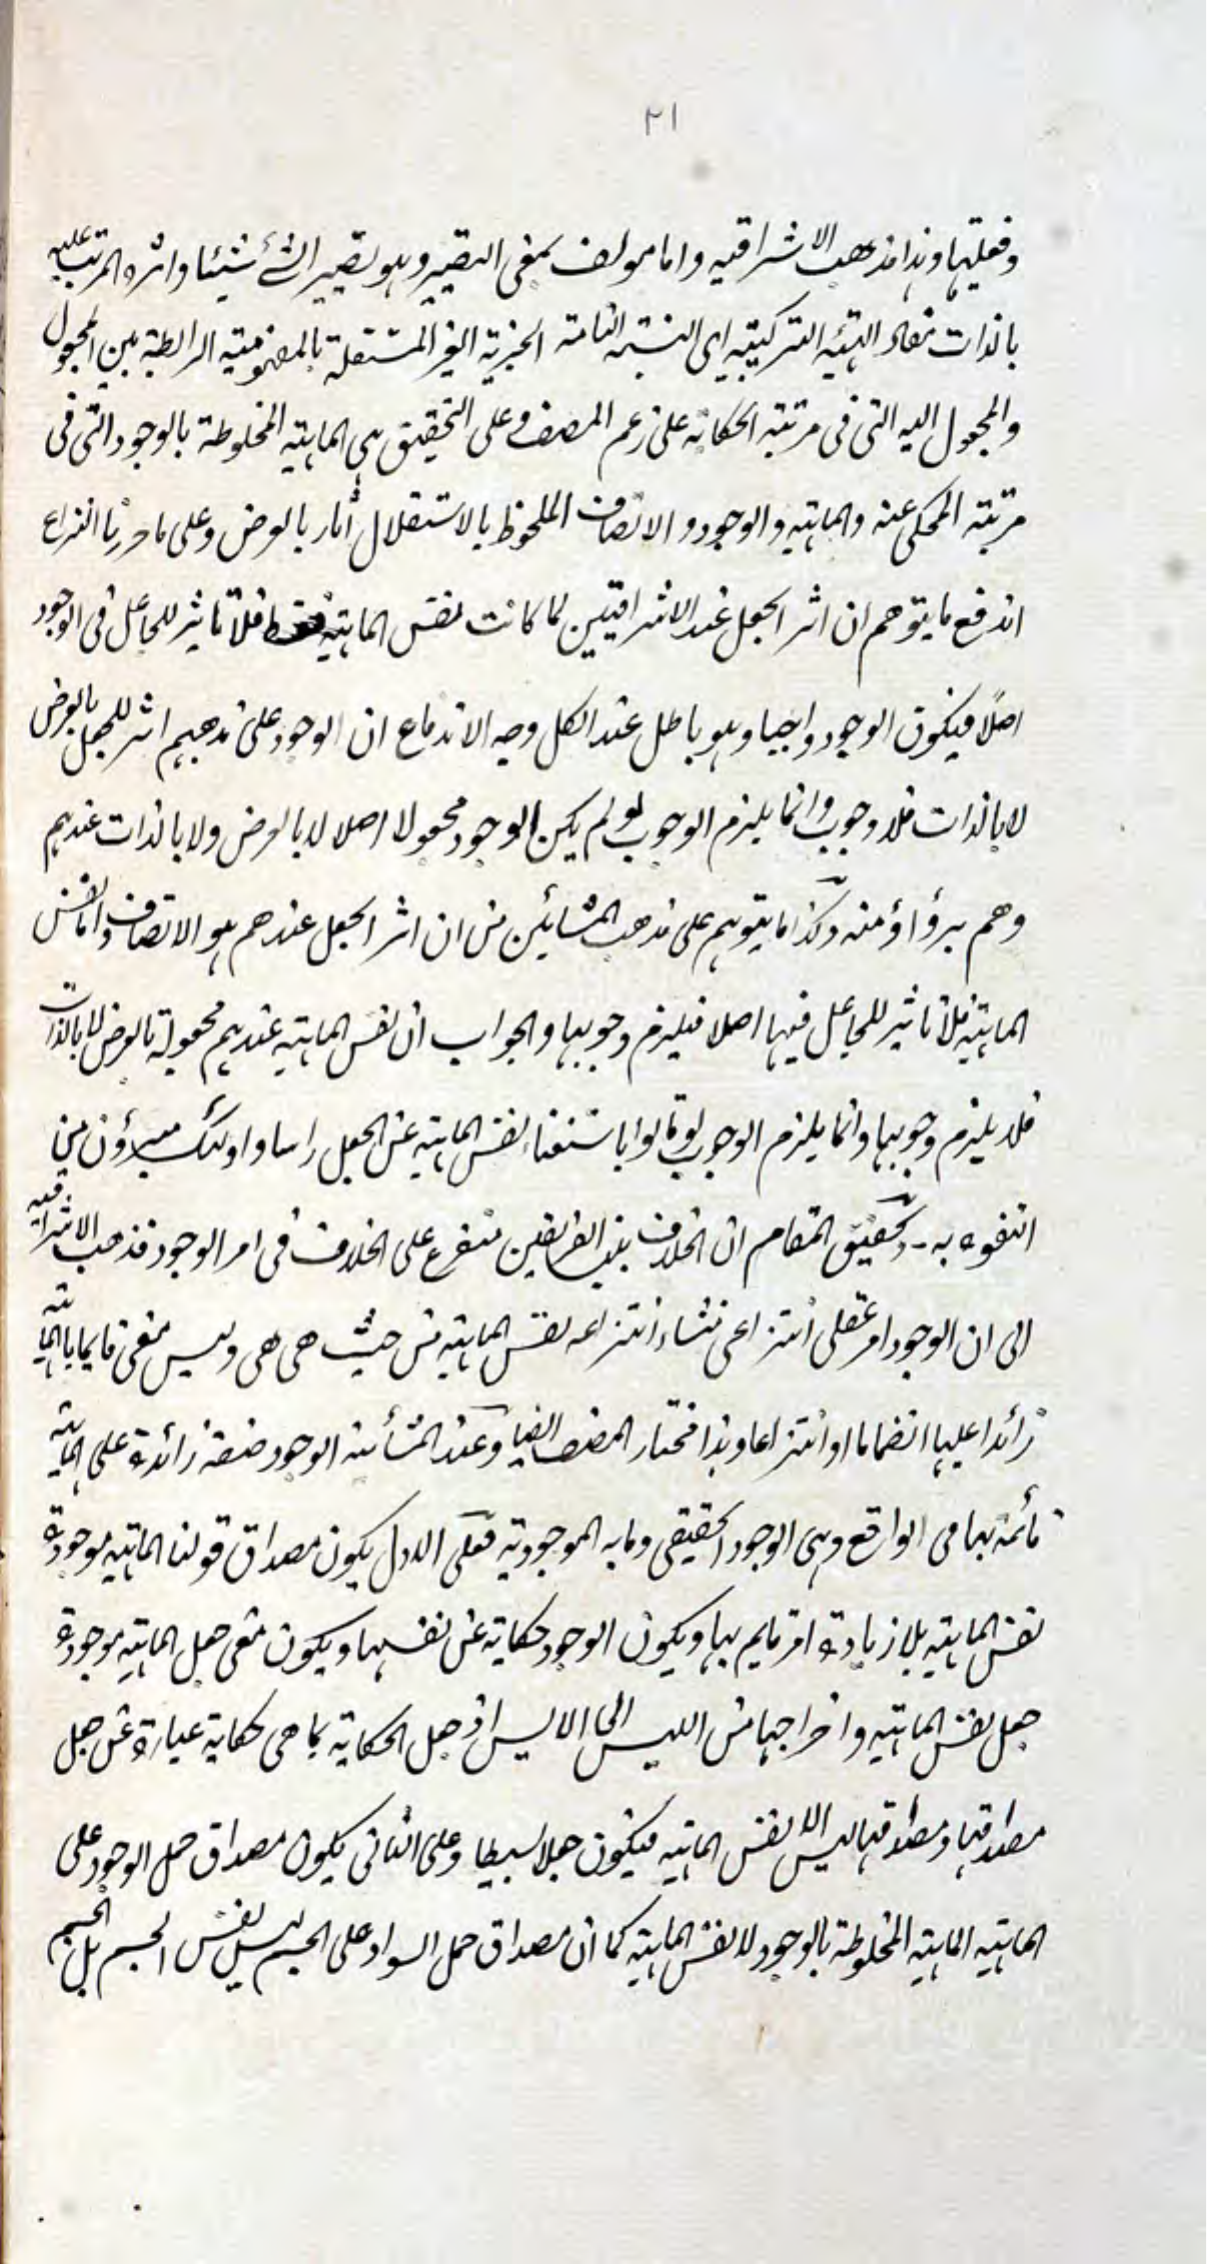 ٢١
وفعليتها وهذا مذهب الاشراقيه واما مولف بمعنى التصيير وهو تصيير الشئ شيئا واثره المرتب عليه
بالذات مفاد الهيئه التركيبيه اى النسبته التامته الخبرية الغير المستقلة بالمفهومية الرابطة بين المجعول
والمجعول اليه التى فى مرتبة الحكاية على زعم المصنف وعلى التحقيق هى الماهيته المخلوطة بالوجود التى فى
مرتبته المحكى عنه والماهيته والوجود والاتصاف الملحوظ بالاستقلال آثار بالعرض وعلى ما حررنا
اندفع ما يتوهم ان اثر الجعل عند الاشراقيين لما كانت نفس الماهيته فقط فلا تاثير للجاعل فى الوجود
اصلاً فيكون الوجود واجبا وهو باطل عند الكل وجه الاندفاع ان الوجود على مذهبهم اثر للجعل بالعرض
لا بالذات فلا وجوب وانما يلزم الوجوب لو لم يكن الوجود مجعولا اصلا لا بالعرض ولا بالذات عندهم
وهم برؤاؤ منه وكذا ما يتوهم على مذهب المشائين من ان اثر الجعل عندهم هو الاتصاف واما نفس
الماهيته فلا تاثير للجاعل فيها اصلا فيلزم وجوبها والجواب ان نفس الماهيته عندهم مجعولة بالعرض لا بالذات
فلا يلزم وجوبها وانما يلزم الوجوب لو قالوا باستغناء نفس الماهيته عن الجعل راسا واولئك مبرؤن من
التفوه به - وتحقيق المقام ان الخلاف بين الفريقين متفرع على الخلاف فى امر الوجود فذهب الاشراقيه
الى ان الوجود امر عقلى انتزاعى منشاء انتزاعه نفس الماهيته من حيث هى هى وليس معنى قايما بالماهيته
زائدا عليها انضماما او انتزاعا وهذا مختار المصنف ايضا وعند المشأيه الوجود صفة زائدة على الماهيته
قائمة بها فى الواقع وهى الوجود الحقيقى وما به الموجودية فعلى الاول يكون مصداق قولنا الماهيته موجودة
نفس الماهيته بلا زيادة امر قايم بها ويكون الوجود حكاية عن نفسها ويكون معنى جعل الماهيته موجودة
جعل نفس الماهيته واخراجها من الليس الى الايس اذ جعل الحكاية بما هى حكاية عبارة عن جعل
مصداقها ومصداقها ليس الا نفس الماهيته فيكون جعلا بسيطا وعلى الثانى يكون مصداق حمل الوجود على
الماهيته الماهيته المخلوطة بالوجود لا نفس الماهيته كما ان مصداق حمل السواد على الجسم ليس نفس الجسم بل الجسم